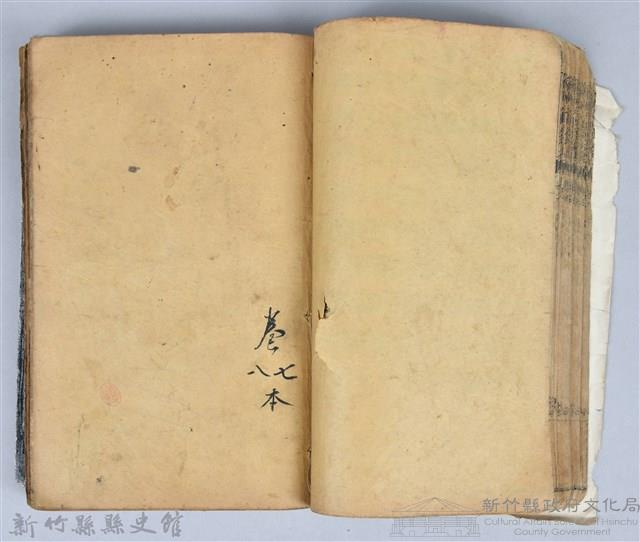 卷
七八
本
新竹縣縣史館
新竹縣政府文化局
Cultural Affairs Bureau of Hsinchu
County Government